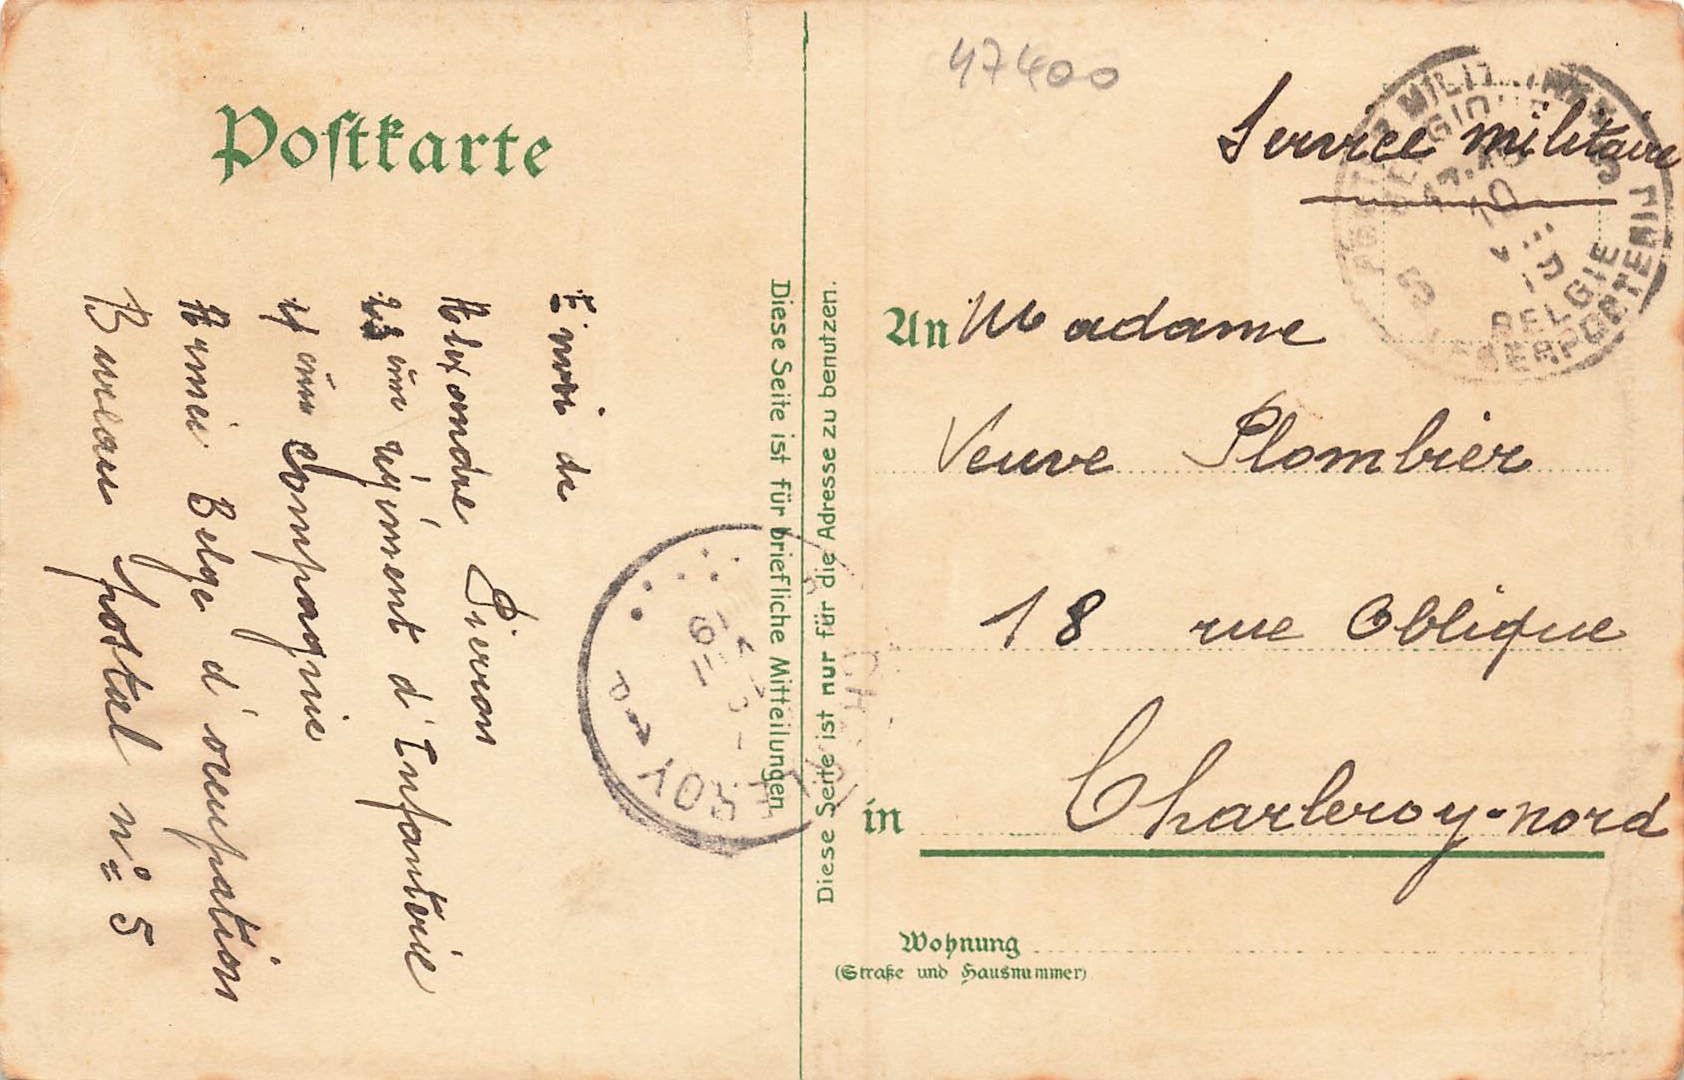 Postkarte
47400
Service militaire
POSTES MILITAIRES
BELGIQUE
BELGIE
LEGERPOSTERIJ
5
5
Envoi de
Alexandre Pierron
ième régiment d'Infanterie
4 ième Compagnie
Armée Belge d'occupation
Bureau postal n° 5
Diese Seite ist für briefliche Mitteilungen
Diese Seite ist nur für die Adresse zu benutzen.
CHARLEROY
19
An Madame
Veuve Plombier
18 rue Oblique
in Charleroy-nord
Wohnung
(Straße und Hausnummer)